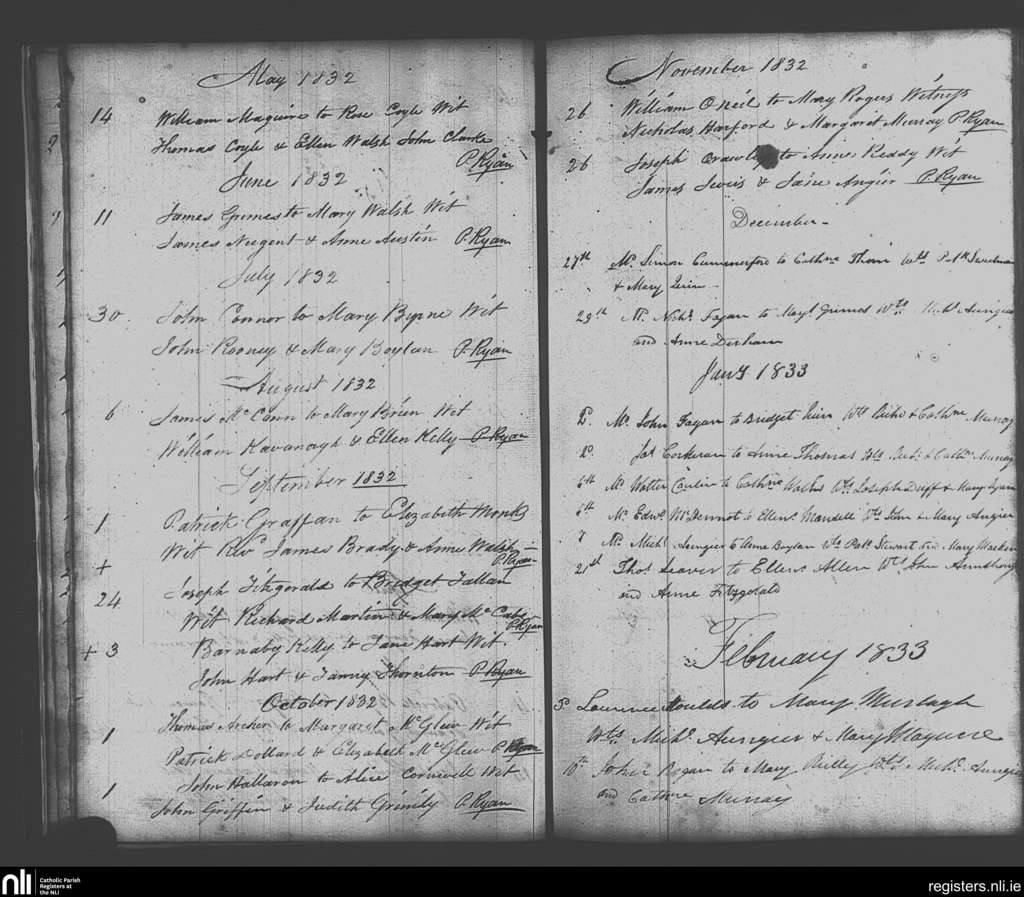 May 1832
14 William Maguire to Rose Coyle Wit
Thomas Coyle & Ellen Walsh John Clarke
P. Ryan
June 1832
11 James Grimes to Mary Walsh Wit
James Nugent & Anne Austin P. Ryan
July 1832
30 John Connor to Mary Byrne Wit
John Rooney & Mary Boylan P. Ryan
August 1832
6 James Mc Cann to Mary Brien Wit
William Kavanagh & Ellen Kelly P. Ryan
September 1832
1 Patrick Graffan to Elizabeth Monks
Wit Revd James Brady & Anne Walsh
P. Ryan
+
24 Joseph Fitzgerald to Bridget Fallan
Wit Richard Martin & Mary Mc Cabe
P. Ryan
+ 3 Barnaby Kelly to Jane Hart Wit
John Hart & Fanny Thornton P. Ryan
October 1832
1 Thomas Archer to Margaret Mc Glew Wit
Patrick Dollard & Elizabeth Mc Glew P. Ryan
1 John Halloron to Alice Cornwell Wit
John Griffin & Judith Grimly P. Ryan
November 1832
26 William O Neil to Mary Rogers Witness
Nicholas Harford & Margaret Murray P. Ryan
26 Joseph to Anne Reddy Wit
James Lewis & Jane Angier P. Ryan
December
27th Mr Simon Cummerford to Cathne Wts
& Mary Quin
29th Mr Nichs Fagan to Grimes Wts Aungier
and Anne Dunham
Jany 1833
2 Mr John Fagan to Bridget Quin Wts & Cathne Murray
2 Jas Corkeran to Anne Thomas Wts & Cathe Murray
6th Mr Walter to Cathne Wts Joseph Duff & Mary
6th Mr Edwd Mc Dermot to Ellen Mansell Wts John & Mary Angier
7 Mr Michl Aungier to Anne Boylan Wts Patk Stewart and Mary
21st Thos Seaver to Ellen Allen Wts John Armstrong
and Anne Fitzgerald
February 1833
5 Laurence Moulds to Mary Murtagh
Wts Michl Aungier & Mary Maguire
10th John Rogan to Mary Reilly Wts Michl Aungier
and Cathne Murray
nli
Catholic Parish
Registers at
the NLI
registers.nli.ie